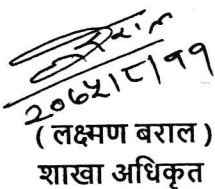 २०७५।८।११
(लक्ष्मण बराल)
शाखा अधिकृत